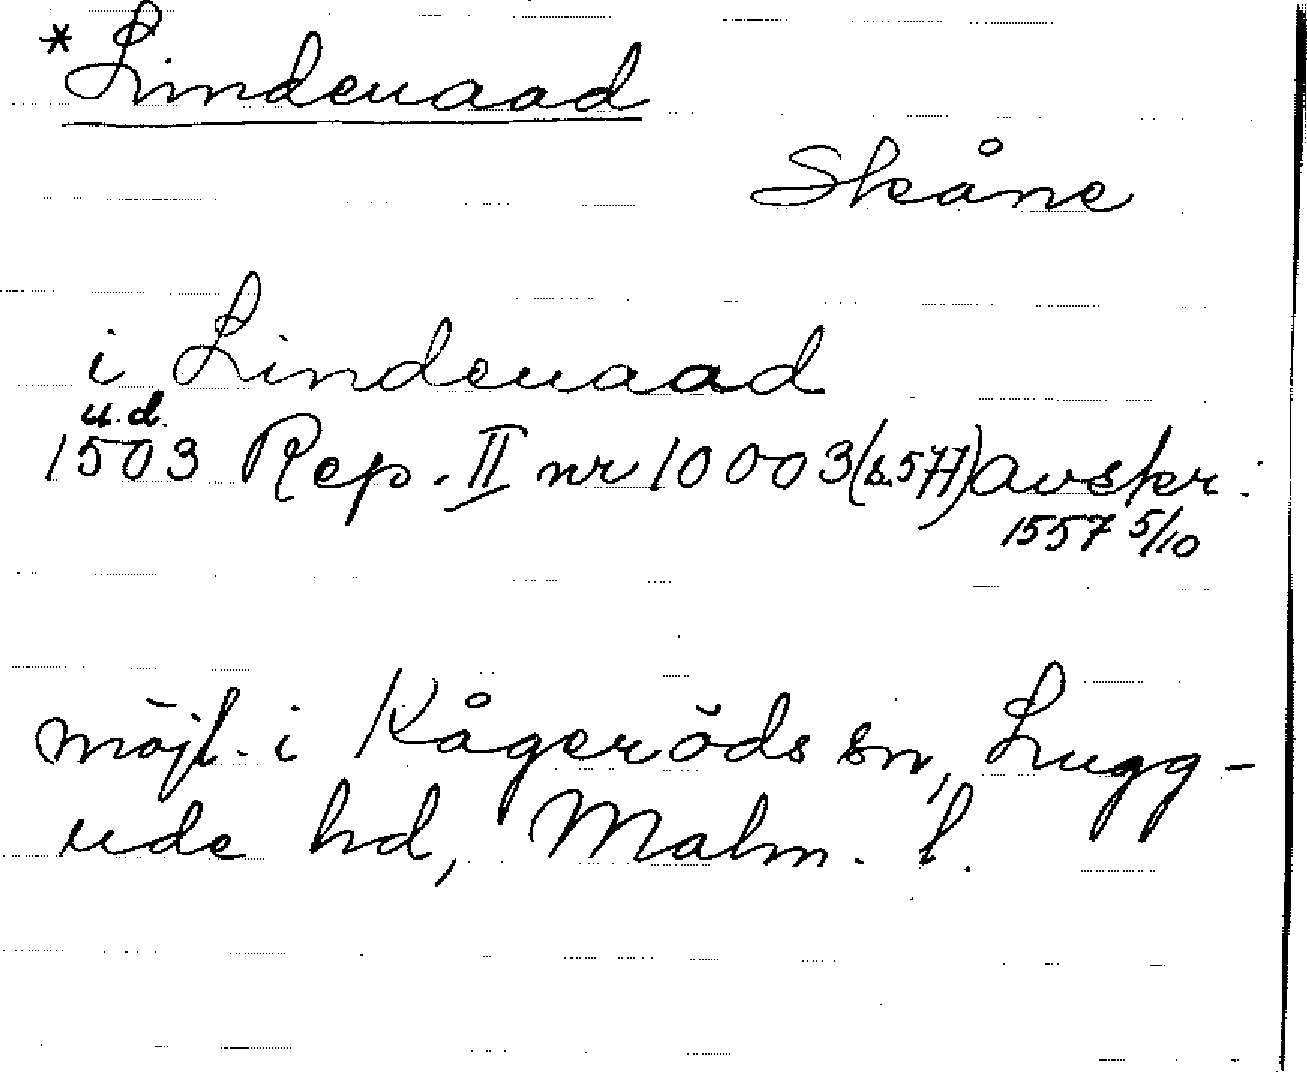 *Lindeuaad
Skåne
i Lindeuaad
u.d.
1503 Rep. II nr 10003 (s.577) avskr.
1557 5/10
möjl. i Kågeröds sn, Lugg-
ude hd, Malm. l.